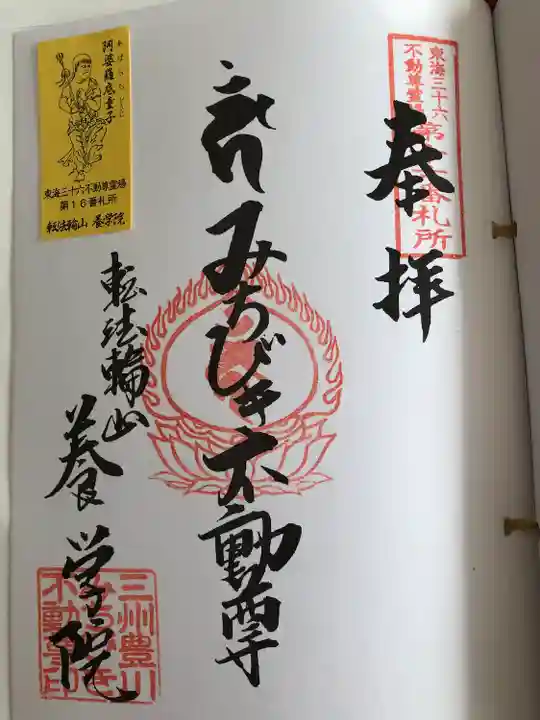 東海三十六
不動尊霊場
第十六番札所
奉拝
みちびき不動尊
転法輪山
養学院
三州豊川
みちびき
不動尊印
あばらちどうじ
阿婆羅底童子
東海三十六不動尊霊場
第16番札所
転法輪山 養学院